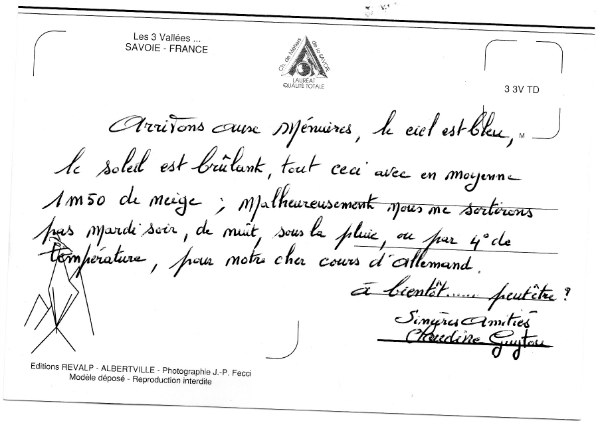 Les 3 Vallées ...
SAVOIE - FRANCE
Ch. de Métiers de la SAVOIE
LAURÉAT
QUALITÉ TOTALE
3 3V TD
M
Arrivons aux Ménuires, le ciel est bleu,
le soleil est brûlant, tout ceci avec en moyenne
1m50 de neige ; Malheureusement nous ne sortirons
pas mardi soir, de nuit, sous la pluie, ou par 4° de
température, pour notre cher cours d'allemand.
à bientôt...... peut être ?
Sincères Amitiés
Claudine
Editions REVALP - ALBERTVILLE - Photographie J.-P. Fecci
Modèle déposé - Reproduction interdite